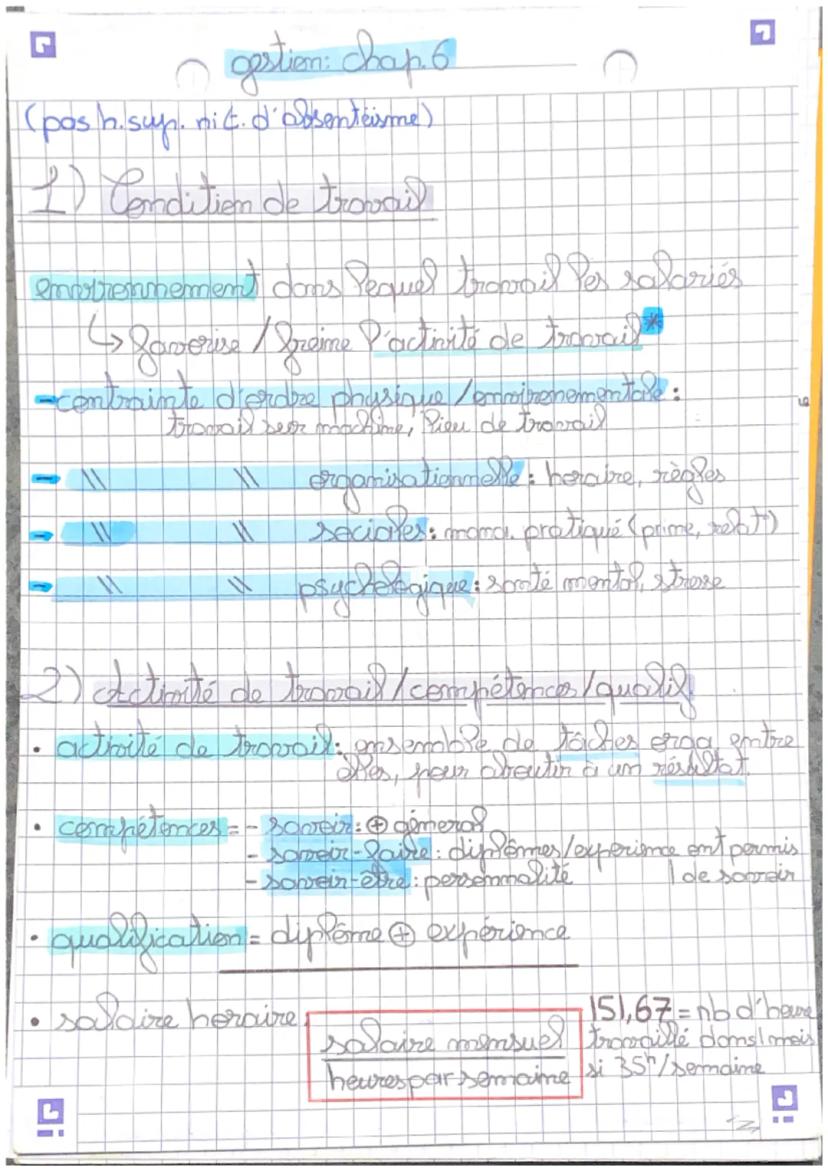 gestion: chap. 6
(pas h. sup. ni t. d'absentéisme)
1) Condition de travail
environnement dans lequel travail les salariés
↳ favorise / freine l'activité de travail*
- contrainte d'ordre physique / environementale :
travail seur machine, lieu de travail
- \\ \\ organisationnelle : horaire, règles
- \\ \\ sociales : mana. pratiqué (prime, relat°)
- \\ \\ psychologique : santé mental, stresse
2) Activité de travail / compétences / qualif
• activité de travail : ensemble de tâches orga entre
elles, pour aboutir à un résultat.
• compétences = - savoir : ⊕ géneral
- savoir-faire : diplômes / expérience ont permis
- savoir-être : personnalité | de savoir
• qualification = diplôme ⊕ expérience
• salaire horaire
salaire mensuel
heures par semaine
151,67 = nb d'heure
travaillé dans 1 mois
si 35h / semaine